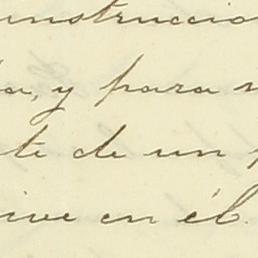 instruccio
a, y para
te de un
ive en él.